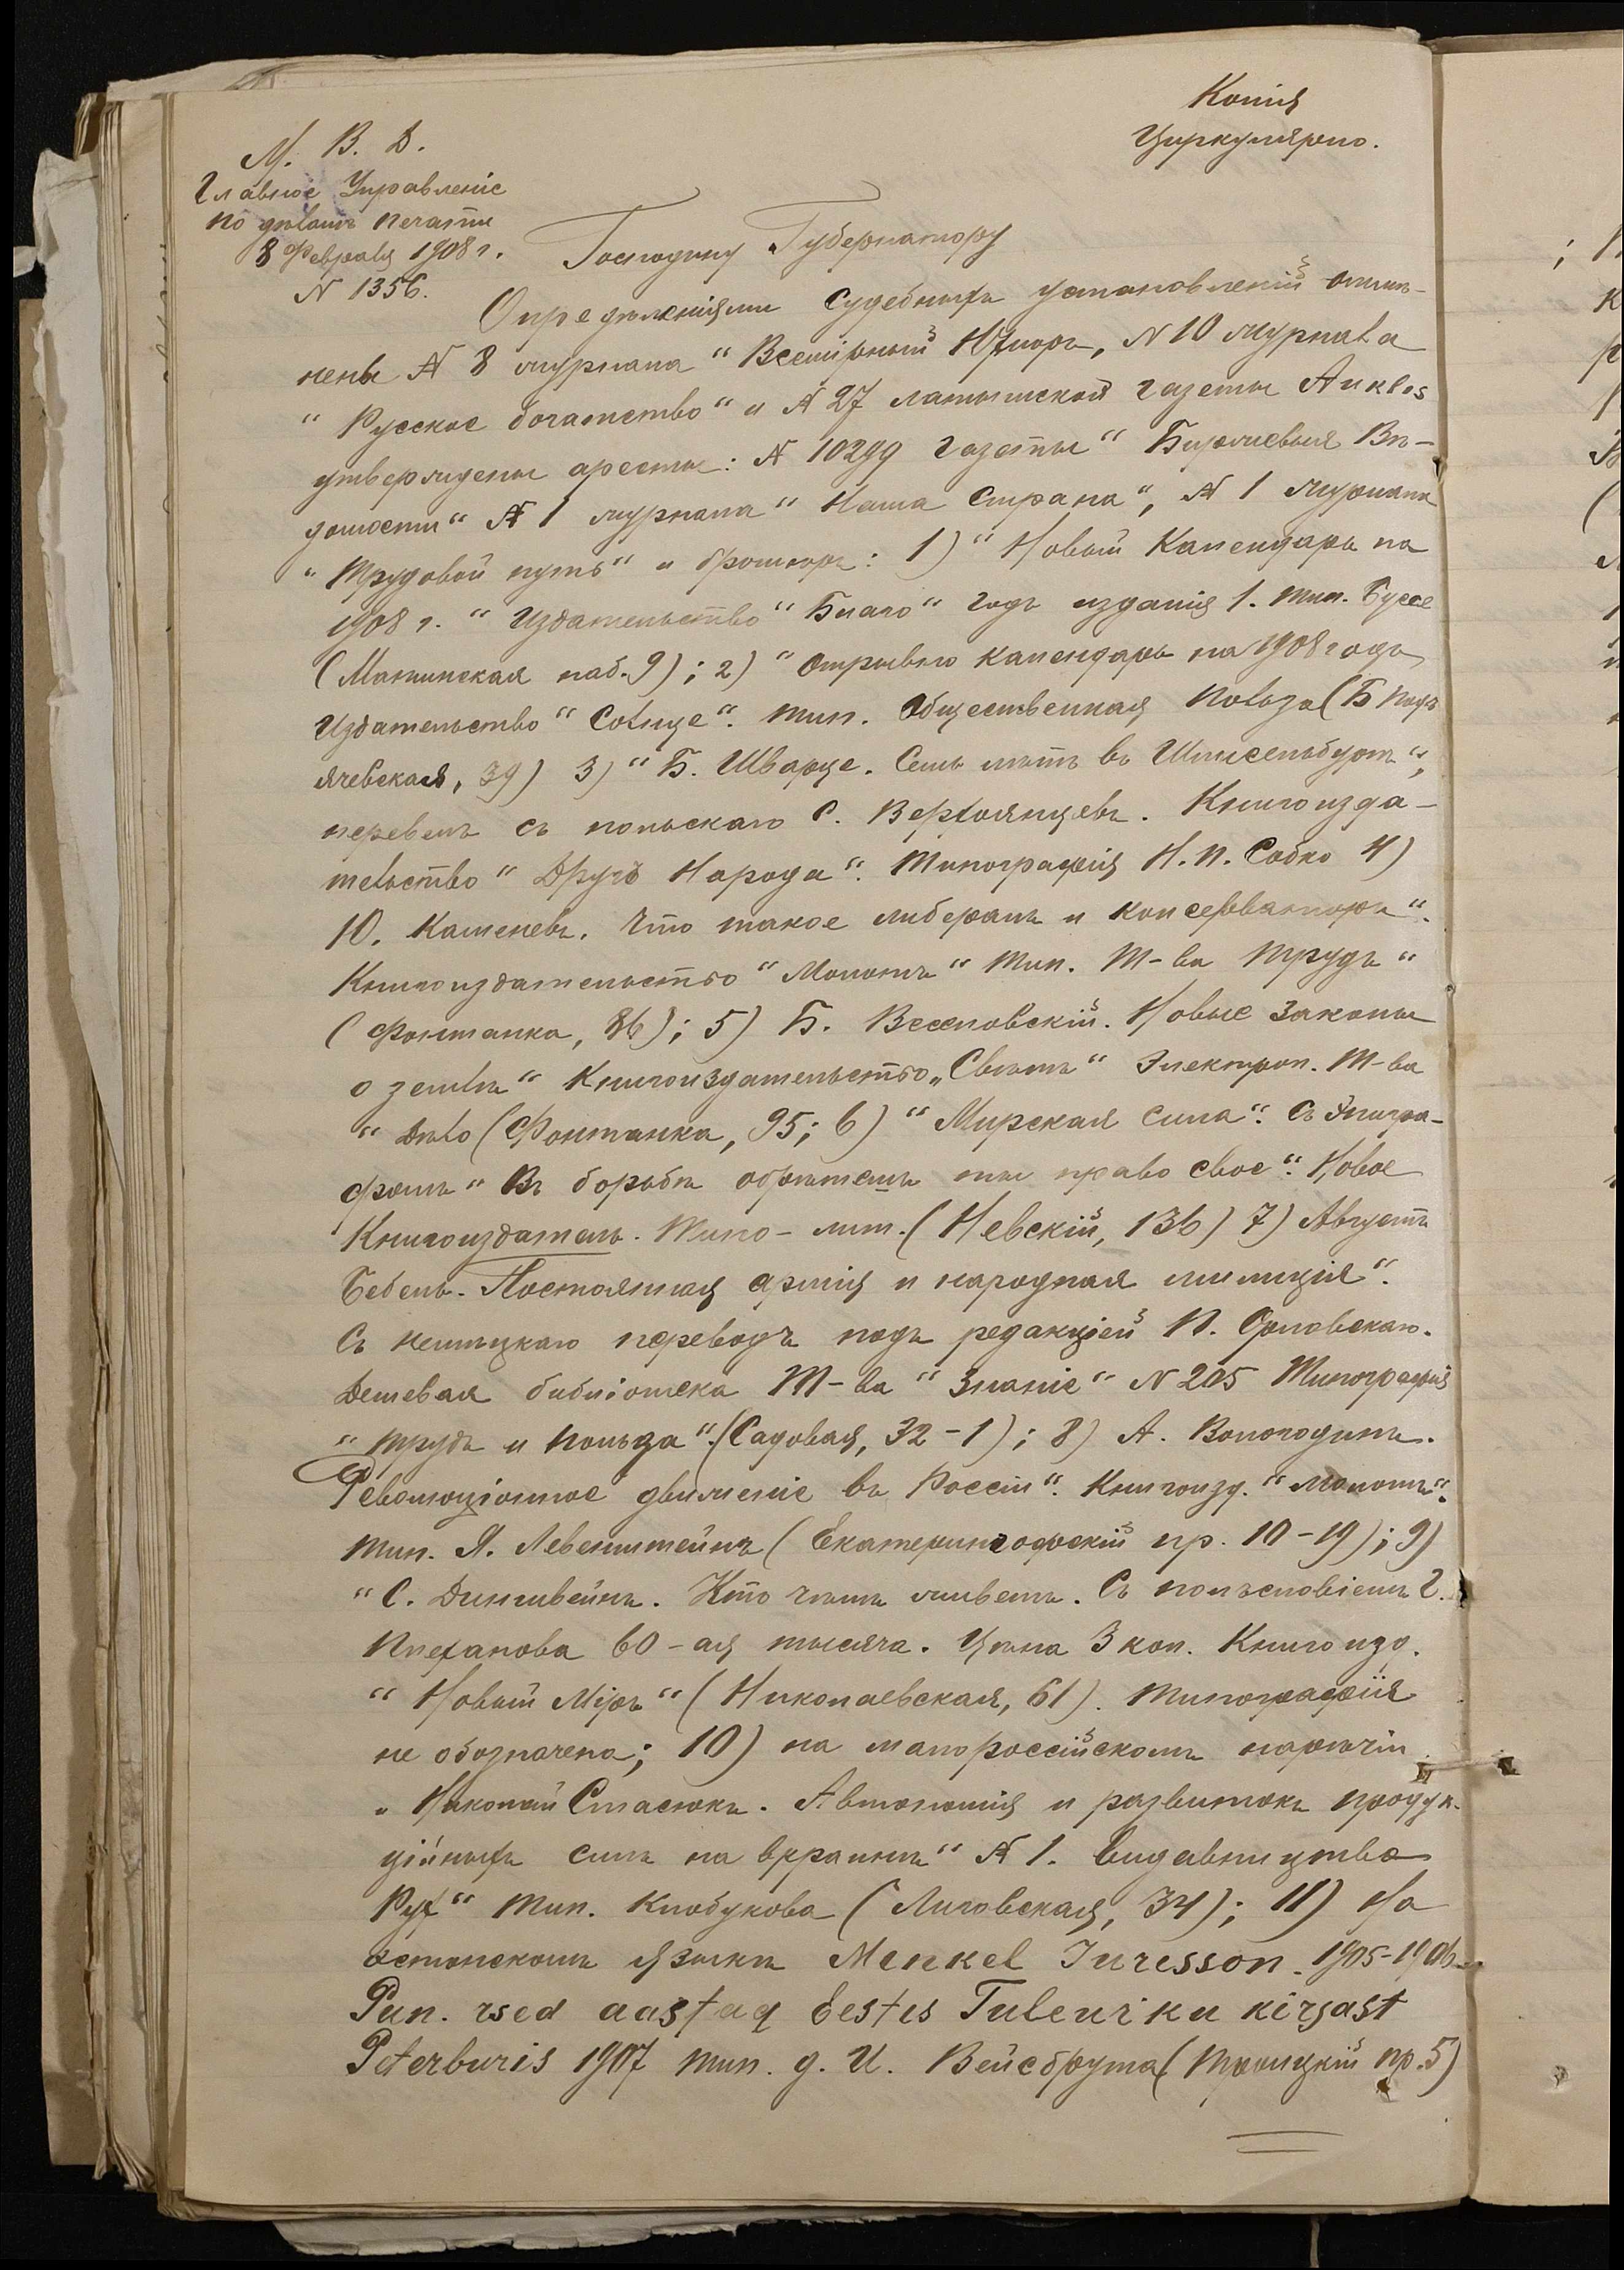 Копія
Циркулярно.
М. В. Д.
Главное Управленіе
по дѣламъ печати
8 Февраля 1908 г.
N 1356.
Господину Губернатору
Опредѣленіями Судебныхъ установленій отмѣ-
нены № 8 журнала "Всемірный Юморъ, N 10 журнала
"Русское богатство" и № 27 латышской газеты
утверждены аресты: № 10299 газеты "Биржевыя Вѣ-
домости" № 1 журнала "Наша Страна", № 1 журнала
"Трудовой путь" и брошюръ: 1) "Новый Календарь на
1908 г. "Издательство "Благо" годъ изданія 1. тип. Буссе
(Мытнинская наб. 9); 2) "Отрывно календарь на 1908 годъ
Издательство "Солнце". тип. Общественная Польза (Б Подъ
яческая, 39) 3) "Б. Шварце. Семь лѣтъ въ Шлиссельбургѣ",
перевелъ съ польскаго С. Верхоянцевъ. Книгоизда-
тельство "Другъ Народа". Типографія Н. П. Собко 4)
Ю. Каменевъ. Что такое либералъ и консерваторъ".
Книгоиздательство "Молотъ" Тип. Т-ва Трудъ"
(Фонтанка, 86); 5) Б. Веселовскій. Новые Законы
о землѣ" Книгоиздательство „Свѣтъ" Электроп. Т-ва
"Дѣло (Фонтанка, 95; 6) "Мирская сила". Съ Эпигра-
фомъ "Въ борьбѣ обрѣтешь ты право свое". Новое
Книгоиздатель. Типо-лит. (Невскій, 136) 7) Августъ
Бебель. Постоянная армія и народная милиція".
Съ нѣмецкаго переводъ подъ редакціей П. Орловскаго.
Дешевая библіотека Т-ва "Знаніе" N 205 Типографія
"трудъ и польза". (Садовая, 32-1); 8) А. Вологодинъ.
Революціонное движеніе въ Россіи". Книгоизд. "Молотъ".
тип. Я. Левенштейнъ (Екатерингофскій пр. 10-19); 9)
"С. Дикштейнъ. Кто чѣмъ живетъ. Съ полѣсловіемъ Г.
Плеханова 60-ая тысяча. Цѣна 3 коп. Книгоизд.
"Новый Міръ" (Николаевская, 61). Типографія
не обозначена; 10) на малороссійскомъ нарѣчіи
„Николай Стасюкъ. Автономія и развитокъ продук-
ційныхъ силъ на вкраинѣ" № 1. Видавництво
Рух" Тип. Клобукова (Лиговская, 34); 11) На
эстонскомъ языкѣ Menkel Juresson. 1905-1906
Pun. rsed aastaq Eestis Tuleuriku kirjast
Peterburis 1907 тип. д. И. Вейсбрута (Троицкій пр. 5)